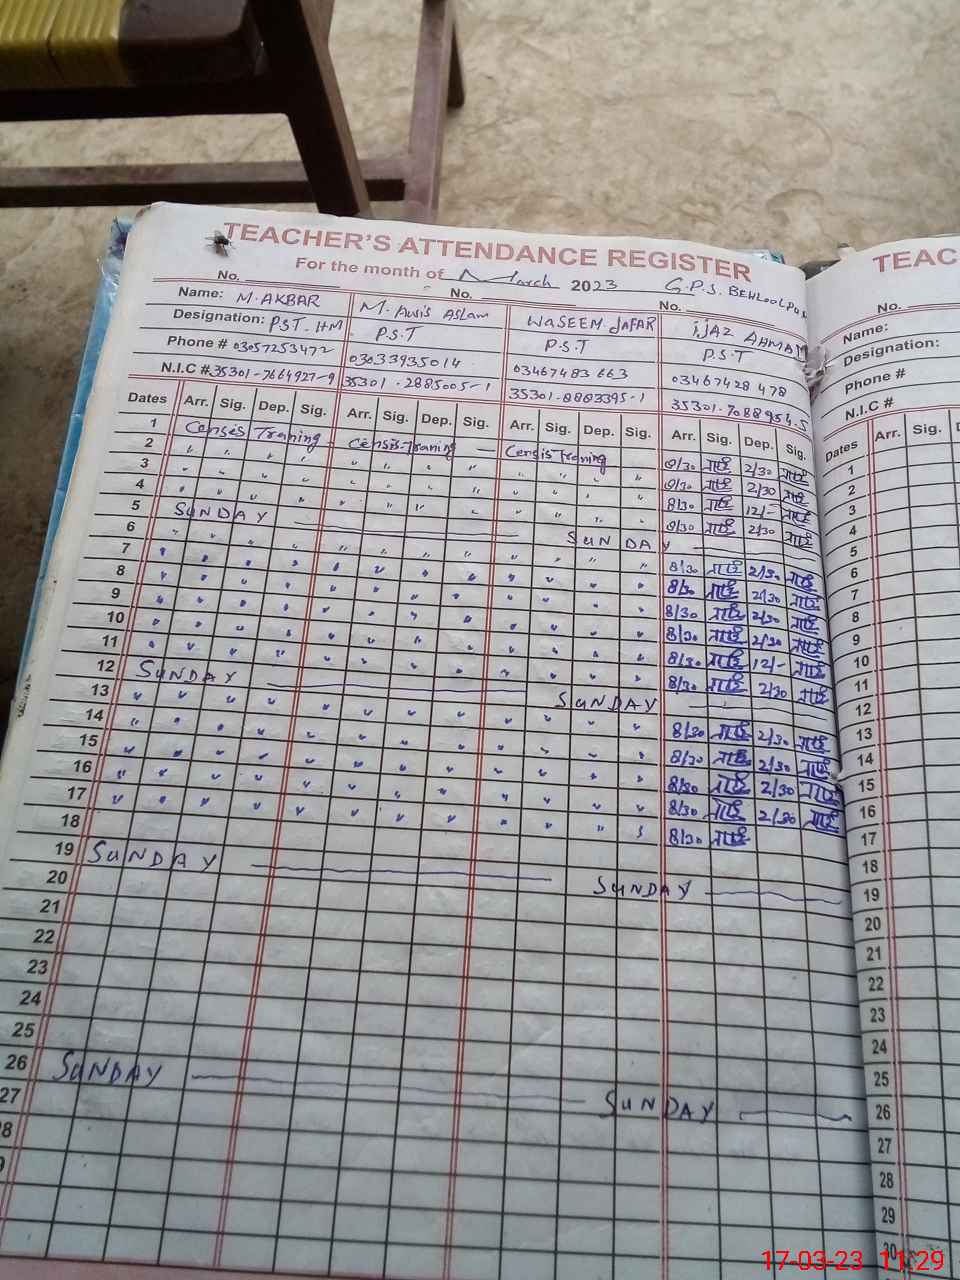 TEACHER'S ATTENDANCE REGISTER
For the month of March 2023 G.P.S. BEHLOOLPUR
No. No. No.
Name: M. AKBAR M. Awis Aslam WASEEM. JAFAR IJAZ AHMAD
Designation: PST-HM P.S.T P.S.T P.S.T
Phone # 03057253472 03033935014 03467483663 03467428478
N.I.C # 35301-7664927-9 35301-2885005-1 35301-8883395-1 35301-7088954-5
Dates Arr. Sig. Dep. Sig. Arr. Sig. Dep. Sig. Arr. Sig. Dep. Sig. Arr. Sig. Dep. Sig.
1 Censes Traning Censis Traning Censis Traning 8/30 2/30
2 " " " " " " " " " " " " 8/30 2/30
3 " " " " " " " " " " " " 8/30 12/-
4 " " " " " " " " " " " " 8/30 2/30
5 SUNDAY SUNDAY
6 " " " " " " " " " " " " 8/30 2/30
7 " " " " " " " " " " " " 8/30 2/30
8 " " " " " " " " " " " " 8/30 2/30
9 " " " " " " " " " " " " 8/30 2/30
10 " " " " " " " " " " " " 8/30 12/-
11 " " " " " " " " " " " " 8/30 2/30
12 SUNDAY SUNDAY
13 " " " " " " " " " " " " 8/30 2/30
14 " " " " " " " " " " " " 8/30 2/30
15 " " " " " " " " " " " " 8/30 2/30
16 " " " " " " " " " " " " 8/30 2/30
17 " " " " " " " " " " " " 8/30
18
19 SUNDAY SUNDAY
20
21
22
23
24
25
26 SUNDAY SUNDAY
27
8
9
TEAC
No.
Name:
Designation:
Phone #
N.I.C #
Dates Arr. Sig.
1
2
3
4
5
6
7
8
9
10
11
12
13
14
15
16
17
18
19
20
21
22
23
24
25
26
27
28
29
30
17-03-23 11:29